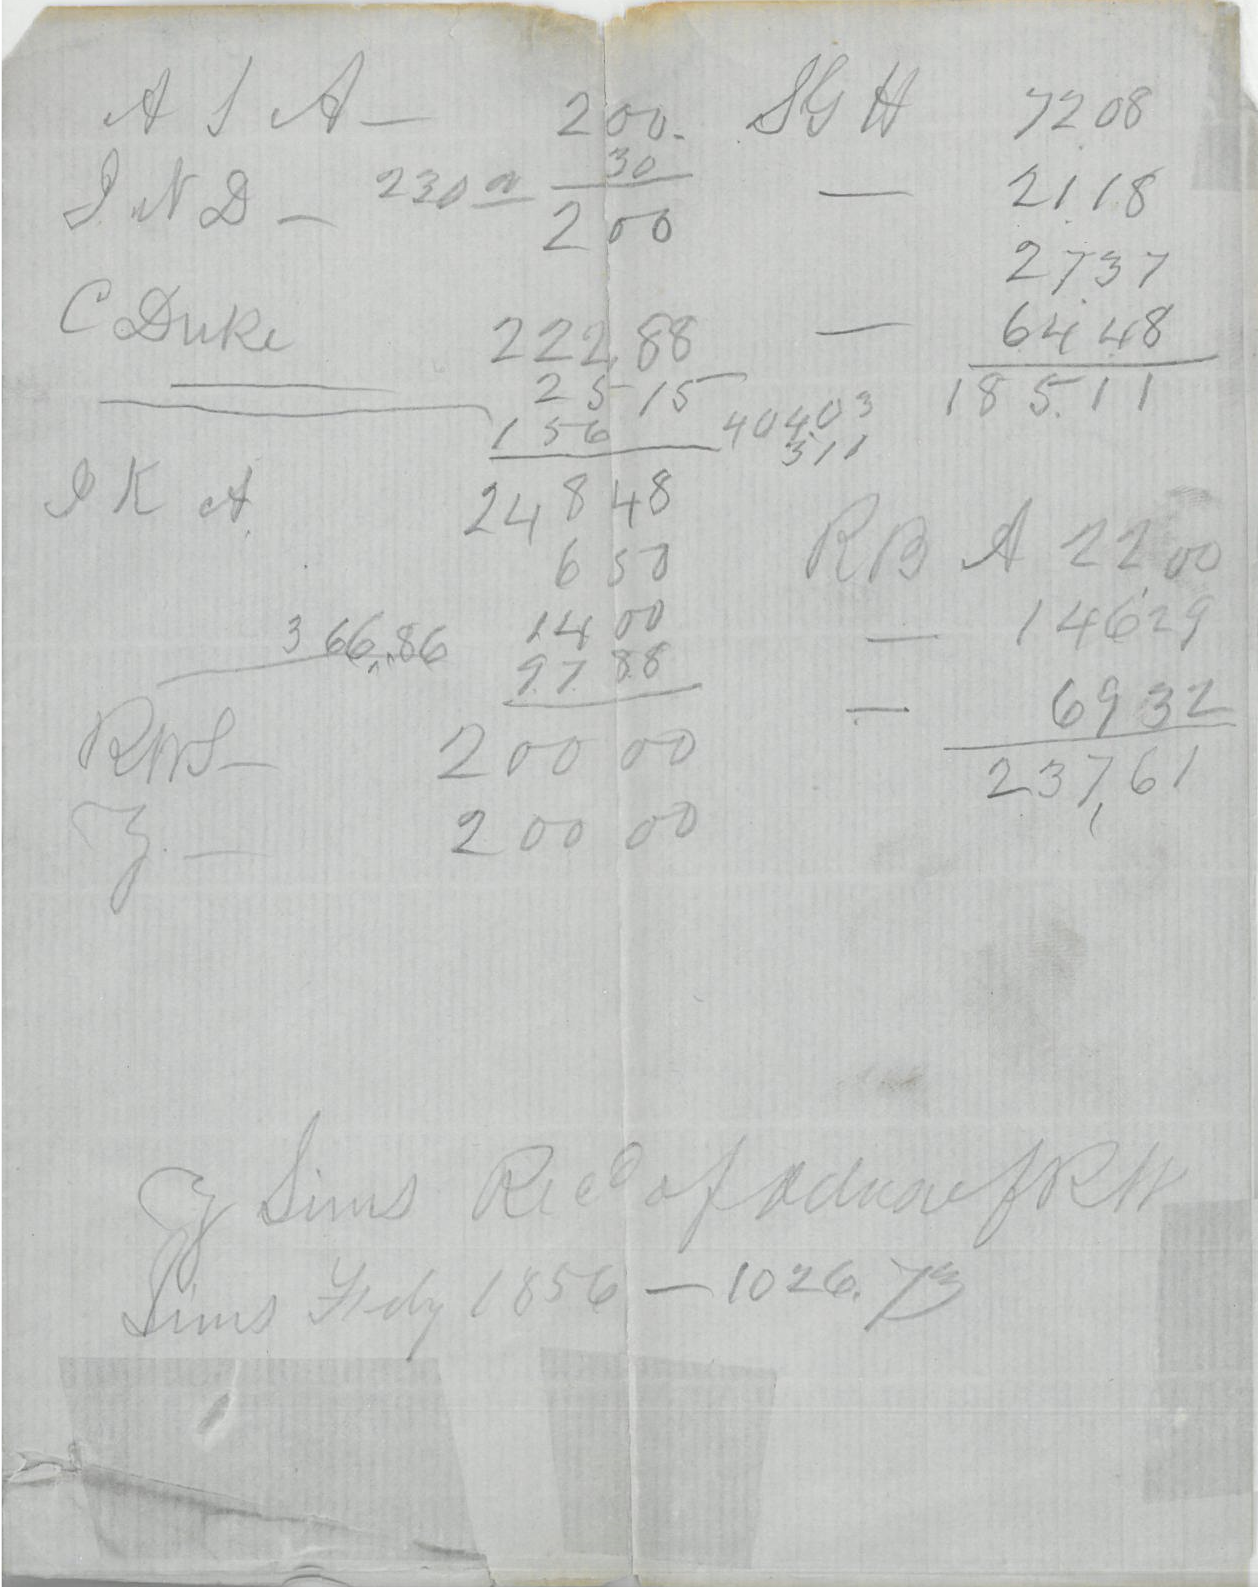 A S A — 200. SGH 7208
30
I N D — 230 — 200 — 2118
2737
C Duke 222,88 — 6448
25 15 18511
156 404.03
311
I K A 24848
650 RB A 2200
14 00 — 14629
366,86 97 88
— 6932
RWS — 200 00
237,61
— 200 00
Sims Recd of Adm of RW
Sims 1856 — 1026.73